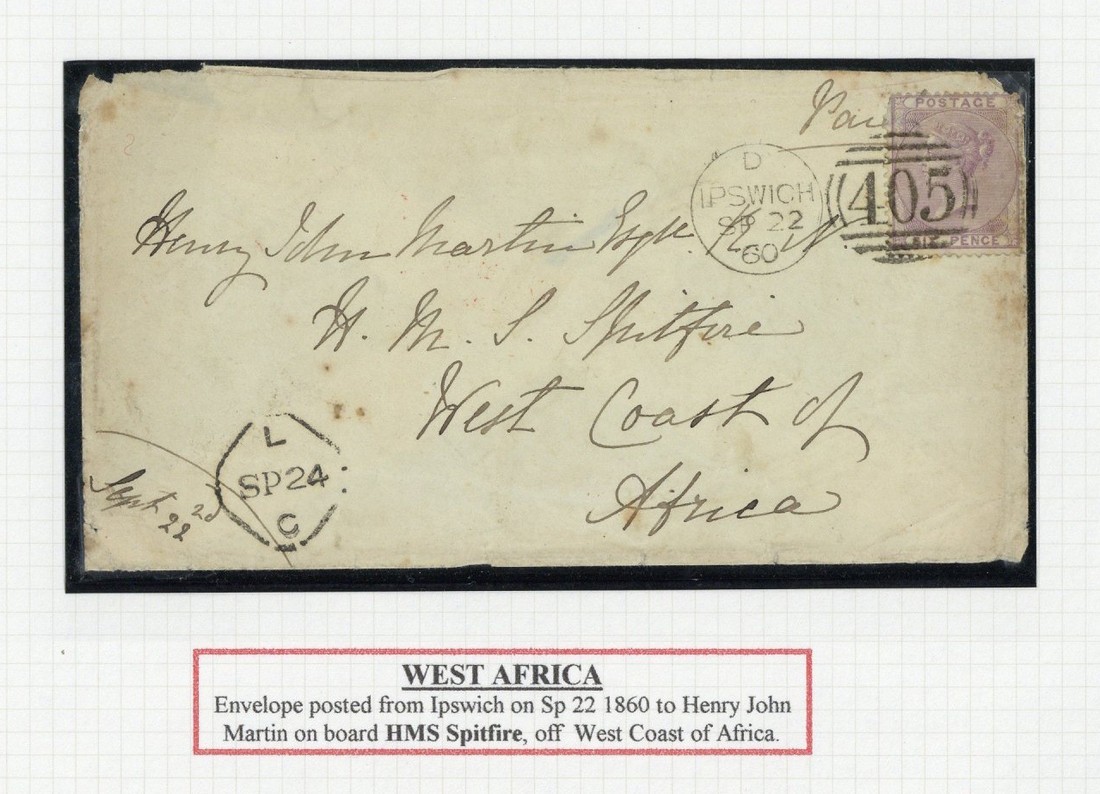 POSTAGE
D
IPSWICH
SP 22
60
405
SIX PENCE
Henry John Martin Esqre R. N.
H. M. S. Spitfire
West Coast of
Africa
L
SP24
C
Sept 22
WEST AFRICA
Envelope posted from Ipswich on Sp 22 1860 to Henry John
Martin on board HMS Spitfire, off West Coast of Africa.